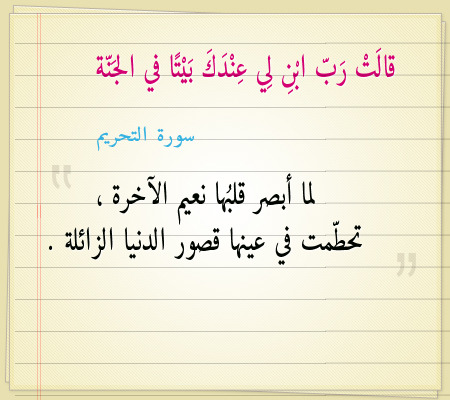 قالَتْ رَبّ ابْنِ لِي عِنْدَكَ بَيْتًا في الجَنّة
سورة التحريم
لما أبصر قلبُها نعيم الآخرة ،
تحطّمت في عينها قصور الدنيا الزائلة .